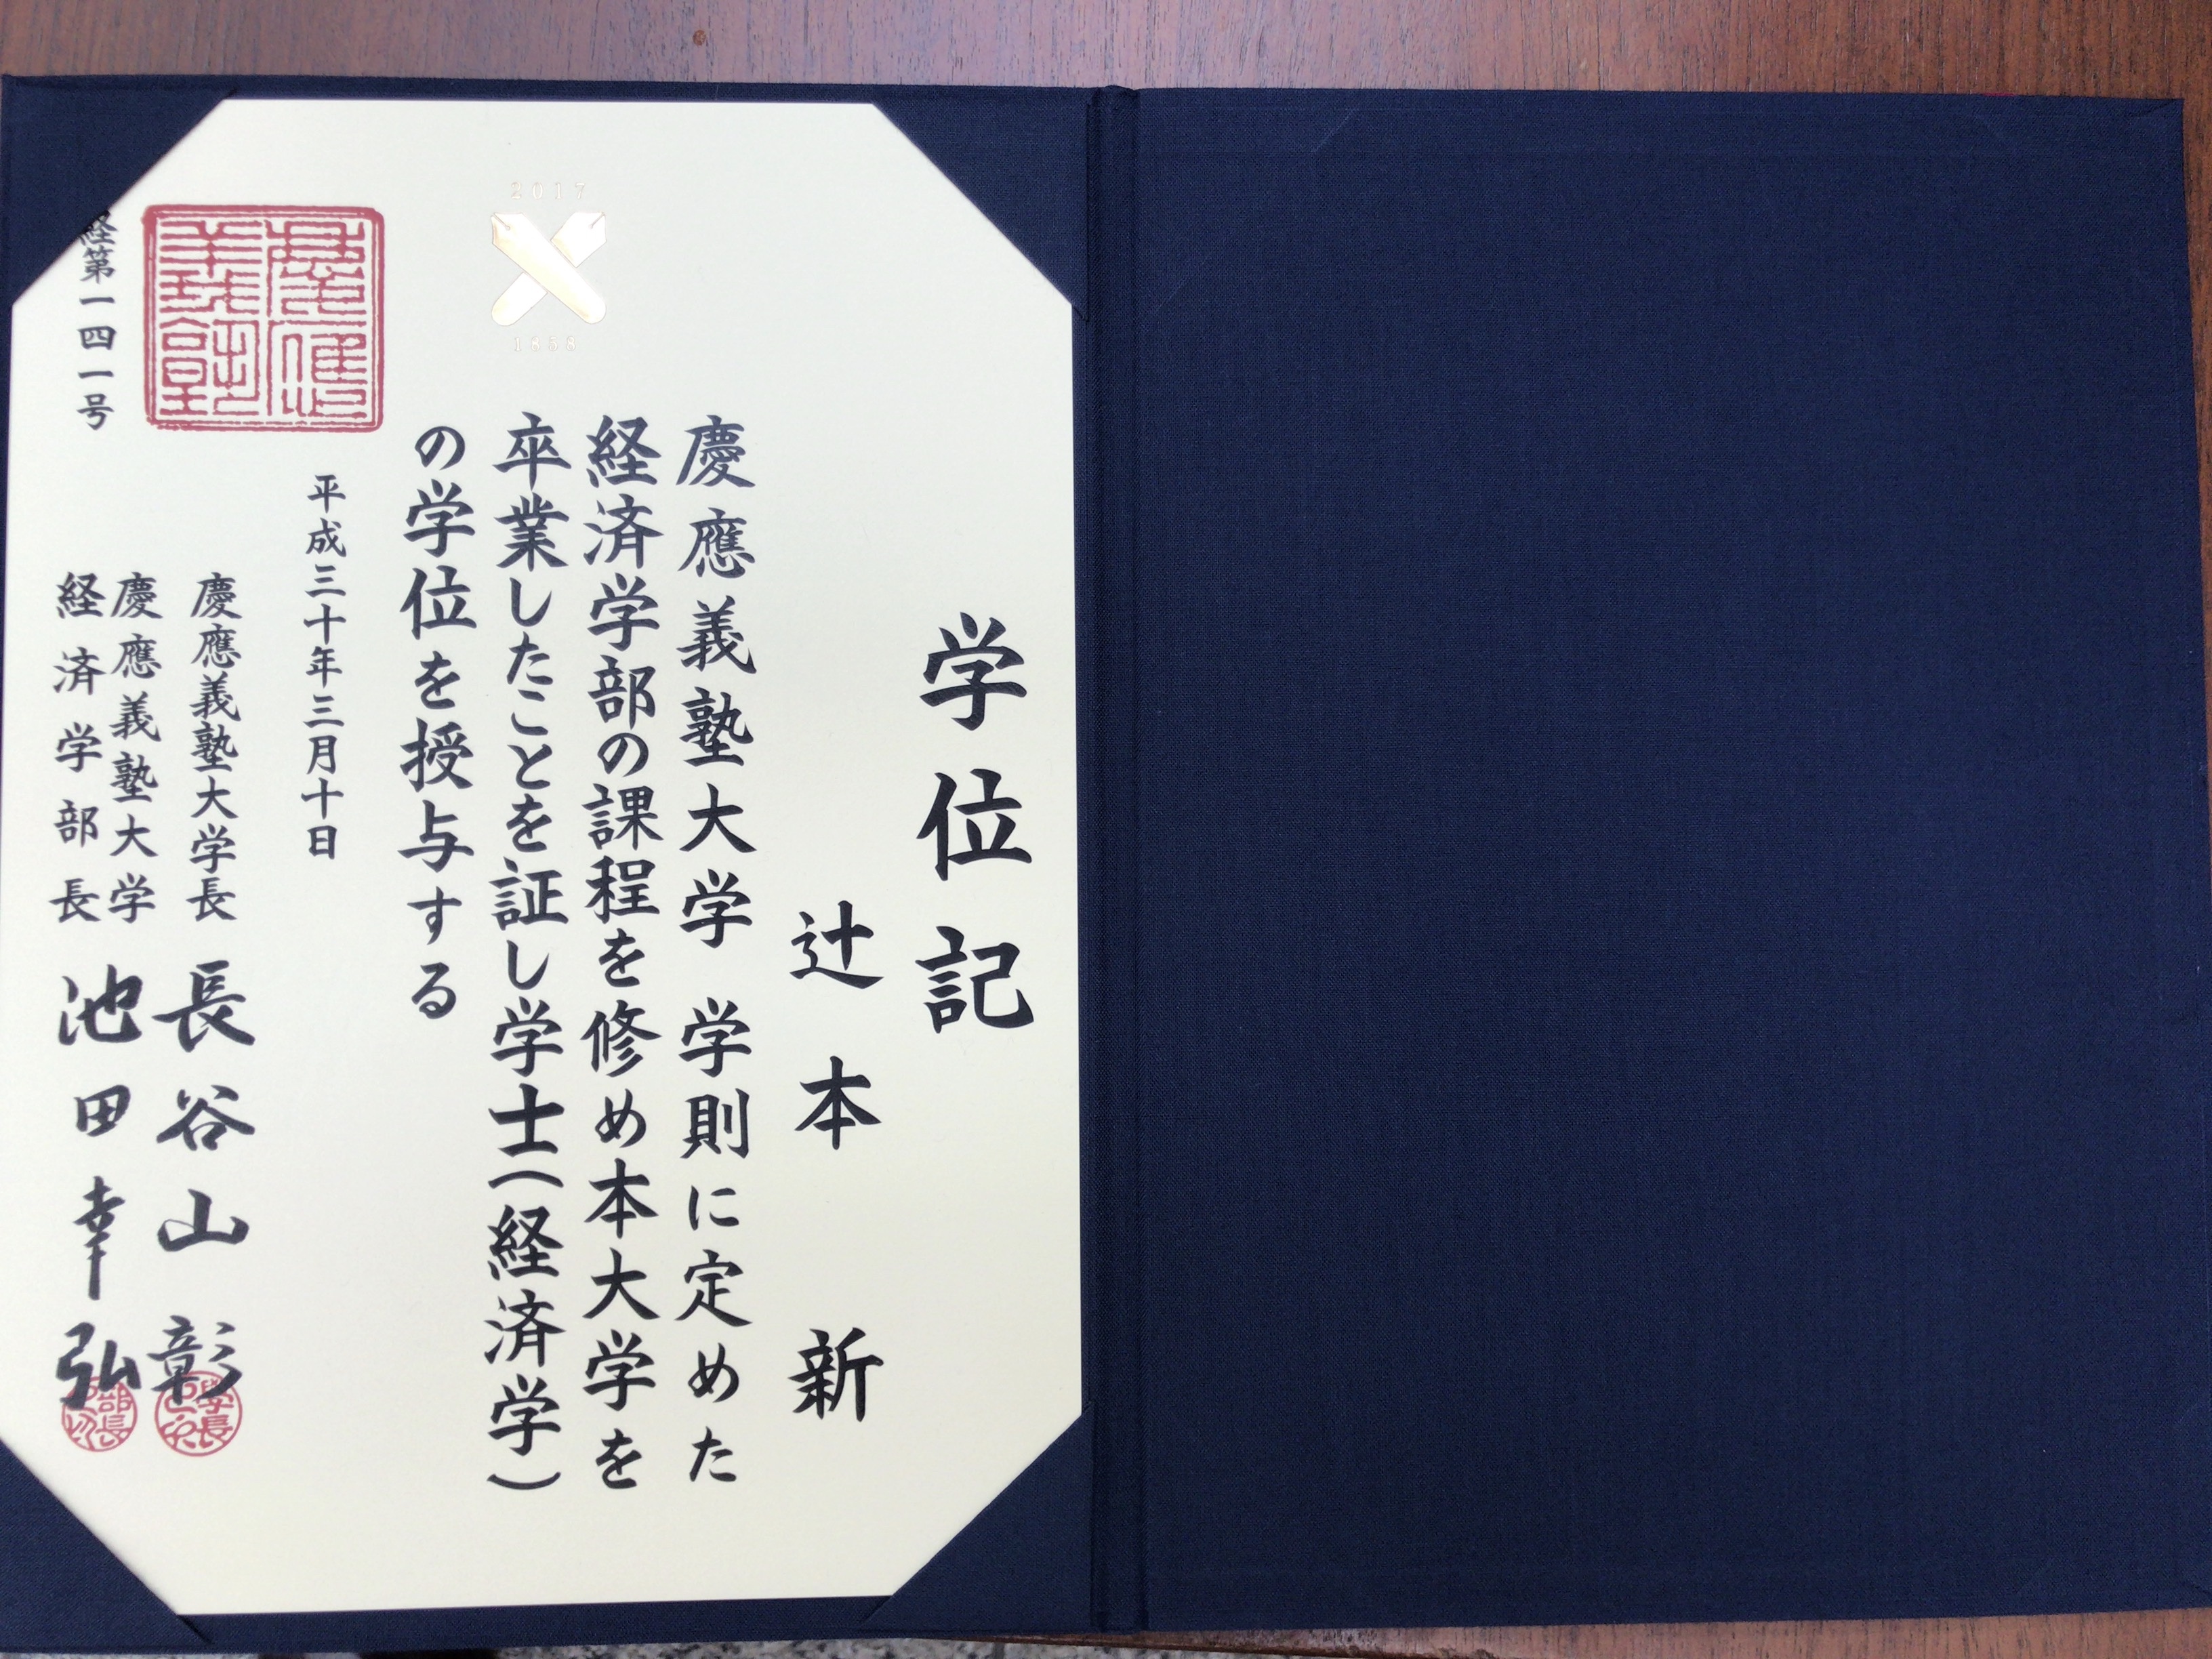 学位記
辻本 新
慶應義塾大学 学則に定めた
経済学部の課程を修め本大学を
卒業したことを証し学士(経済学)
の学位を授与する
平成三十年三月十日
慶應義塾大学長 長谷山彰
慶應義塾大学
経済学部長 池田幸弘
経第一四一号
2017
1858
慶應義塾
学長
部長